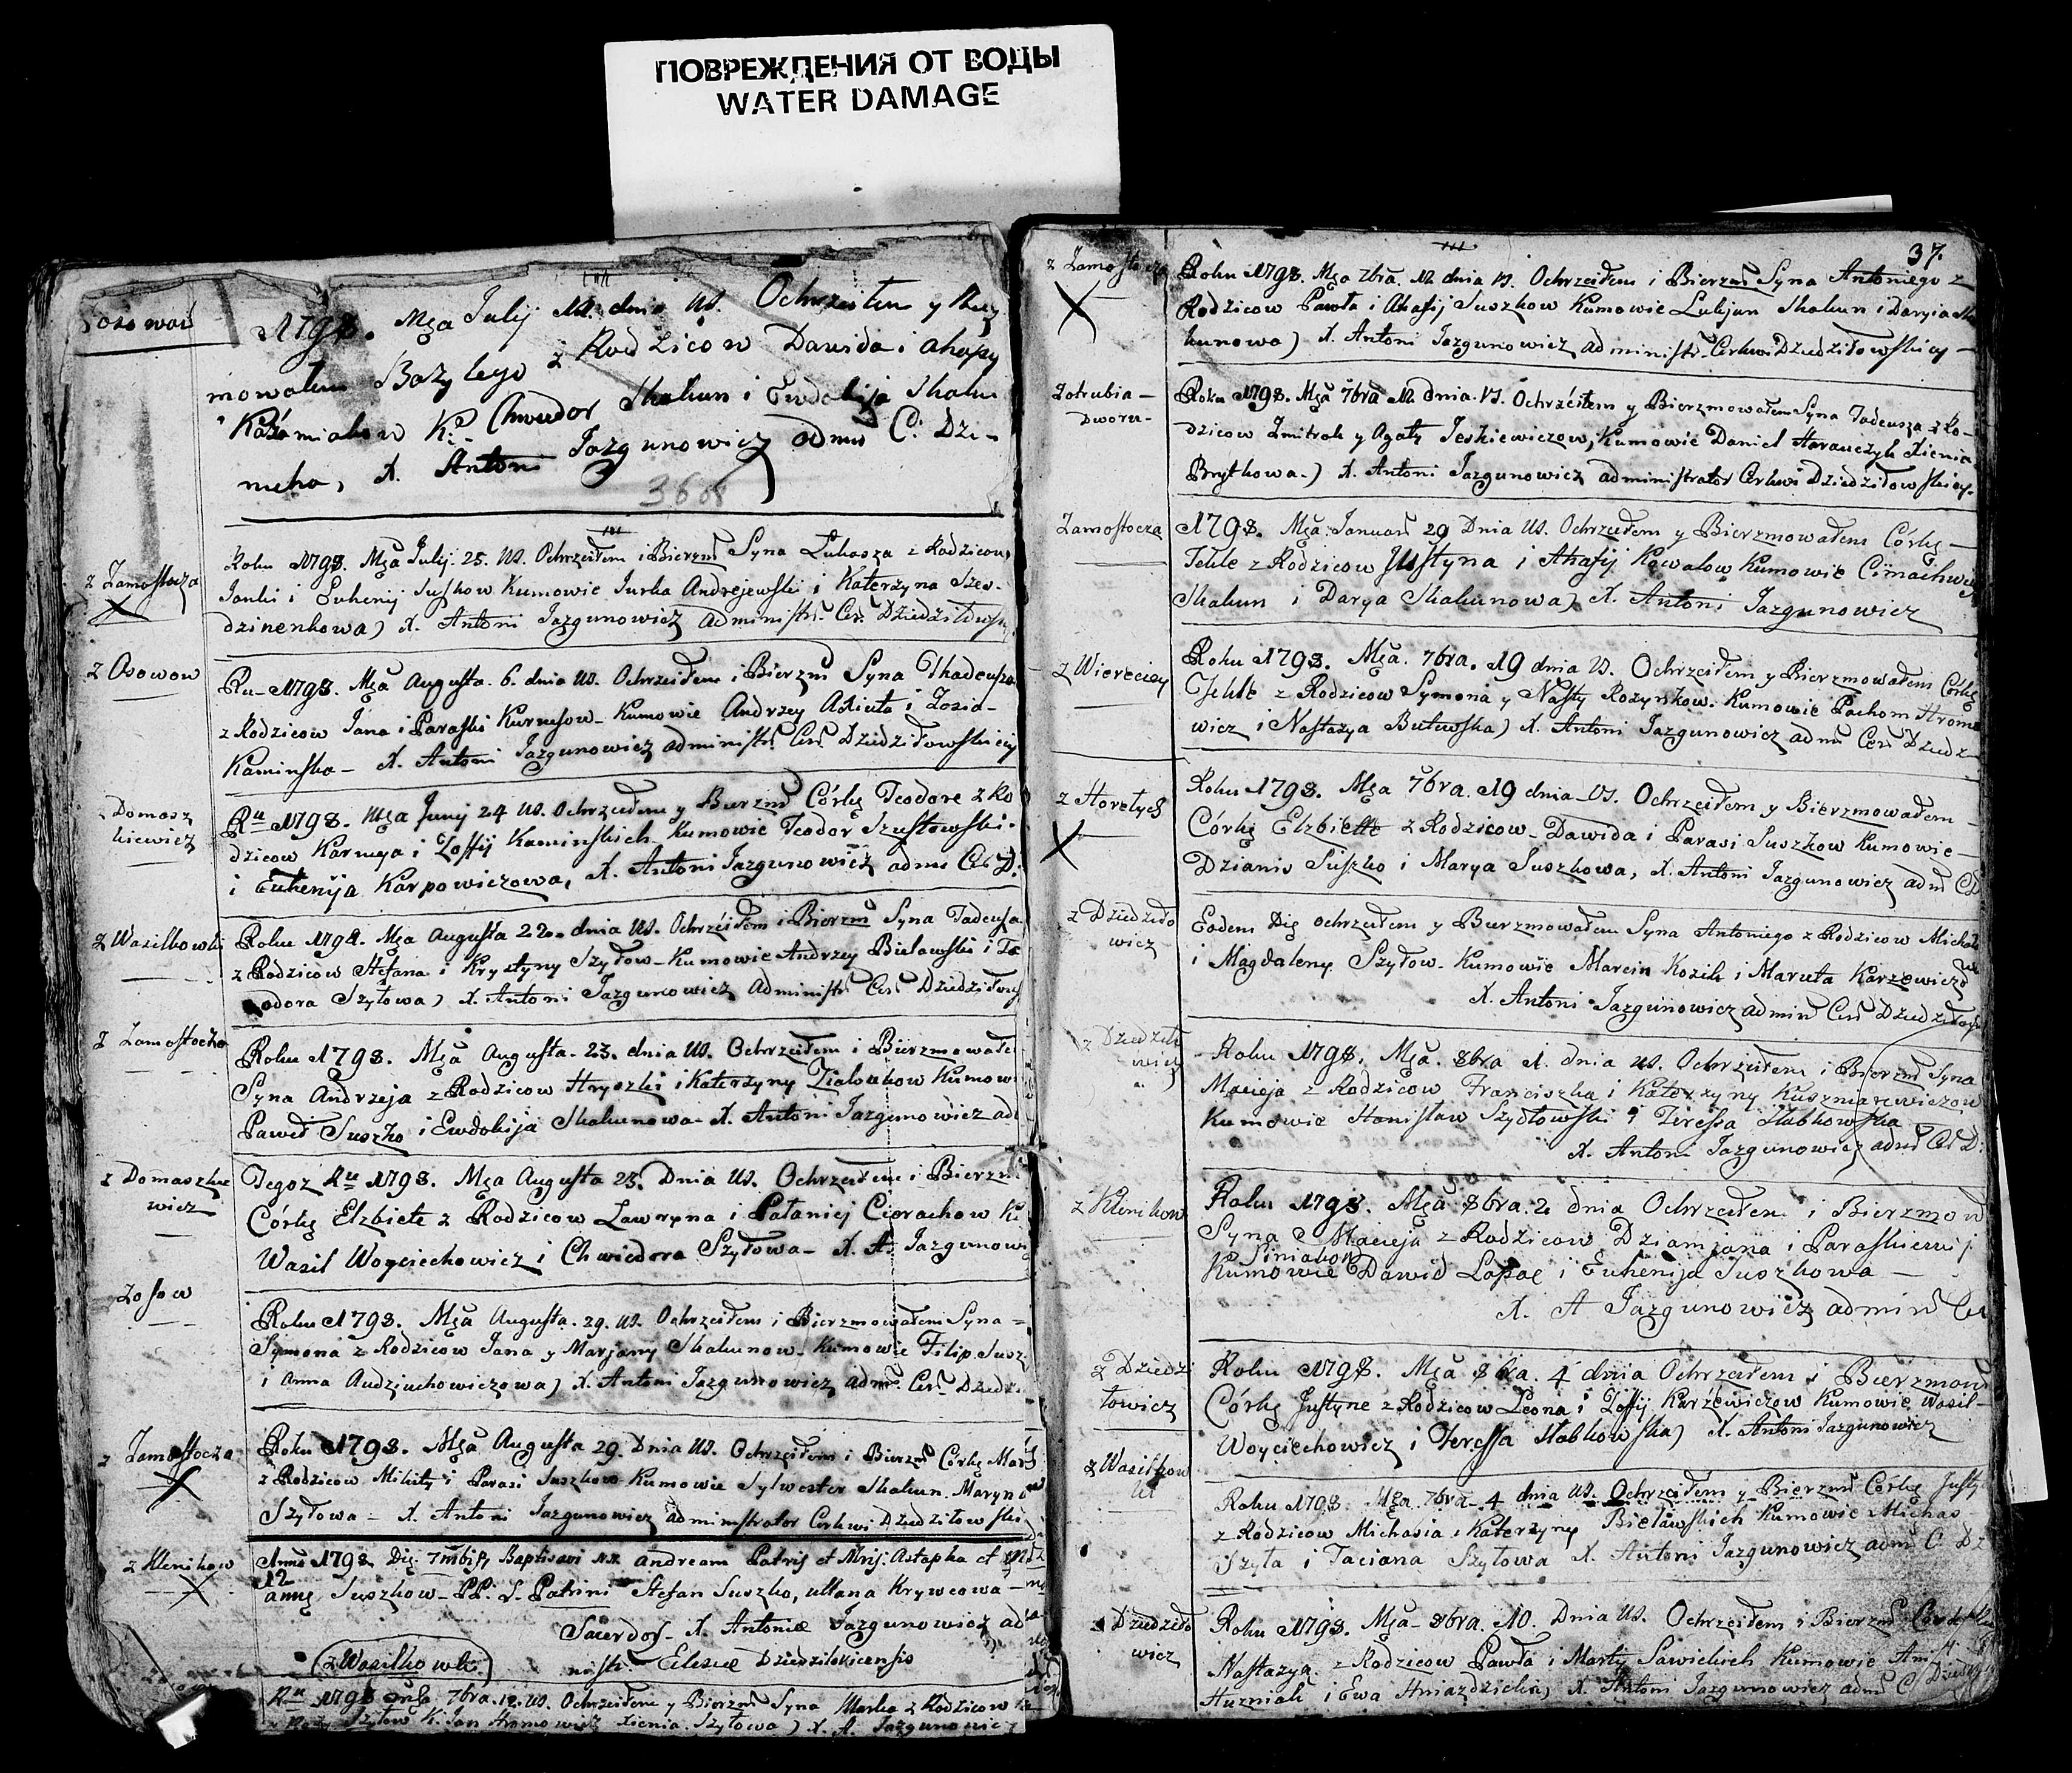 ПОВРЕЖДЕНИЯ ОТ ВОДЫ
WATER DAMAGE
1798. Mca Julij 12. dnia Ut. Ochrzciłem y Bierz
mowałem Bazylego z Rodzicow Dawida i Ahapy
Kuźmiakow K: Chwedor Skakun i Ewdokija Skaku
X. Antoni Jazgunowicz admr C: Dzi-
3608
z Zamostocza
Roku 1798. Mca Julij. 25. Ut. Ochrzciłem i Bierzm Syna Łukasza z Rodzicow
Janki i Euhenij Suszkow Kumowie Jurka Andrejewski i Katerzyna Szes-
dzinenkowa) X. Antoni Jazgunowicz Administr. Cer. Dziedziłows
z Osowow
Ru 1798. Mca Augusta. 6. dnia Ut. Ochrzciłem i Bierzm Syna Thadeusza
z Rodzicow Jana i Paraski Kurnesow Kumowie Andrzey Askiuta i Zosia
Kaminska - X. Antoni Jazgunowicz administr Cer. Dziedziłowskiey
Domasz
kiewicz
Ru 1798. Mca Junij 24 Ut. Ochrzciłem y Bierzm Córkę Teodore z Ro
dzicow Karneya i Zoffij Kaminskich Kumowie Teodor Szustowski.
i Euhenija Karpowiczowa, X. Antoni Jazgunowicz adm Cer D:
z Wasilkowki
Roku 1798. Mca Augusta 22. dnia Ut. Ochrzciłem i Bierzm Syna Tadeusza
z Rodzicow Stefana i Krystyny Szyłow - Kumowie Andrzey Bielawski i To
odora Szyłowa) X. Antoni Jazgunowicz Administr Cer Dziedziłowsk
z Zamostocka
Roku 1798. Mca Augusta. 23. dnia Ut. Ochrzciłem i Bierzmowałe
Syna Andrzeja z Rodzicow Hryszki i Katerzyny Ziatukow Kumow
Paweł Suszko i Ewdokija Skakunowa - X. Antoni Jazgunowicz ad
z Domaszke
wicz
Tegoz Ru 1798. Mca Augusta 25. Dnia Ut. Ochrzciłem i Bierzm
Córkę Elzbiete z Rodzicow Lawryna i Pałanicj Ciorachow Ku
Wasil Woyciechowicz i Chwiedora Szyłowa - X. A. Jazgunowi
Zosow
Roku 1798. Mca Augusta. 29. Ut. Ochrzciłem i Bierzmowałem Syna =
Symona z Rodzicow Jana y Marjany Skakunow. Kumowie Filip Susz
i Anna Audziuchowiczowa) X. Antoni Jazgunowicz adm. Cer. Dziedz
z Zamostocza
Roku 1798. Mca Augusta 29. Dnia Ut. Ochrzciłem i Bierzm Córkę Mar
z Rodzicow Mikity i Parasi Suszkow Kumowie Sylwester Skakun. Maryna
Szyłowa - X. Antoni Jazgunowicz Administrator Cerkwi Dziedziłowski
z Klenikow
Anno 1798 Die 7mbris Baptisavi N.N. andream Patris et Mris: Astapha et
12
annę Suszkow - PP. L. Patrini Stefan Suszko, ullana Krywcowa -
Sacerdos - X. Antonie Jazgunowicz ad
z Wasilkowki
nistr. Elesiæ Dziedzilokicensis
Ru 1798 Mca. 7bra. 12. Ut. Ochrzciłem y Bierzm Syna Marka z Rodzicow
Szyłow K. Jan Hromowicz Xienia Szyłowa) X. A. Jazgunowicz
37.
z Zamostocza
Roku 1798. Mca 7bra. 12 dnia Ut. Ochrzciłem i Bierzm Syna Antoniego z
Rodzicow Pawła i Ahafij Suszkow Kumowie Lukjan Skakun i Daryia Ska
kunowa) X. Antoni Jazgunowicz administr. Cerkwi Dziedziłowskiey -
Zotrubia -
Dworu -
Roku 1798. Mca 7bra 12 dnia Ut. Ochrzciłem y Bierzmowałem Syna Tadeusza z Ro-
dzicow Zmitrok y Agaty Jeskiewiczow, Kumowie Daniel Harauczyk Xienia
Brytkowa -) X. Antoni Jazgunowicz administrator Cerkwi Dziedziłowskiey.
Zamostocza
1798. Mca Januar 29 Dnia Ut. Ochrzciłem y Bierzmowałem Córkę -
Tekle z Rodzicow Justyna i Ahafij Kowalow Kumowie Cimachwey
Skakun i Darya Skakunowa) X. Antoni Jazgunowicz
z Wiereciey
Roku 1798. Mca. 7bra. 19 dnia Ut. Ochrzciłem y Bierzmowałem Córkę
Tekle z Rodzicow Symona y Nasty Rozynkow. Kumowie Pachom Hromo
wicz i Nastazya Butewska) X. Antoni Jazgunowicz adm Cer Dziedz
z Horełych
Roku 1798. Mca 7bra. 19 dnia Ut. Ochrzciłem y Bierzmowałem -
Córkę Elzbiette z Rodzicow - Dawida i Parasi Suszkow Kumowie -
Dzianis Suszko i Marya Suszkowa, X. Antoni Jazgunowicz adm CD
z Dziedzido
wicz
Eodem Die ochrzciłem y Bierzmowałem Syna Antoniego z Rodzicow Michała
i Magdaleny Szyłow. Kumowie Marcin Kozik i Maruta Karzewiczo
X. Antoni Jazgunowicz admin Cer Dziedziłows
z Dziedziło
wicz
Roku 1798. Mca. 8bra 1. dnia Ut. Ochrzciłem i Bierzm Syna
Macieja z Rodzicow Franciszka i Katerzyny Kuszniarewiczow
Kumowie Stanisław Szydłowski i Teressa Słabkowska
X. Antoni Jazgunowicz adm Cer D:
z Klenikow
Roku 1798. Mca 8bra. 2 dnia Ochrzciłem i Bierzmow
Syna Macieja z Rodzicow Dziamjana i Paraskiewij
Siniakow
Kumowie Dawid Łapac i Euhenija Suszkowa -
X. A Jazgunowicz admin Cer
z Dziedzi
łowicz
Roku 1798. Mca 8bra. 4 dnia Ochrzciłem i Bierzmow
Córkę Justyne z Rodzicow Leona i Zoffij Karzewiczow Kumowie Wasil -
Woyciechowicz i Teressa Słabkowska) X. Antoni Jazgunowicz
z Wasilkow
ki
Roku 1798. Mca 7bra 4 dnia Ut. Ochrzciłem y Bierzm Córkę Justy
z Rodzicow Michasia i Katerzyny Bielawskich Kumowie Michas
Szyła i Taciana Szyłowa X. Antoni Jazgunowicz adm C. Dz
z Dziedziło
wicz
Roku 1798. Mca - 8bra. 10. Dnia Ut. Ochrzciłem i Bierzm
Nastazya z Rodzicow Pawła i Marty Sawickich Kumowie
Huzniak i Ewa Hniazdzicka) X. Antoni Jazgunowicz adm C